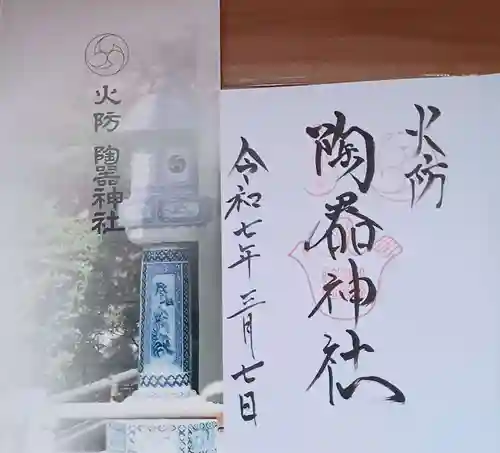 火防
陶器神社
火防
陶器神社
令和七年三月七日